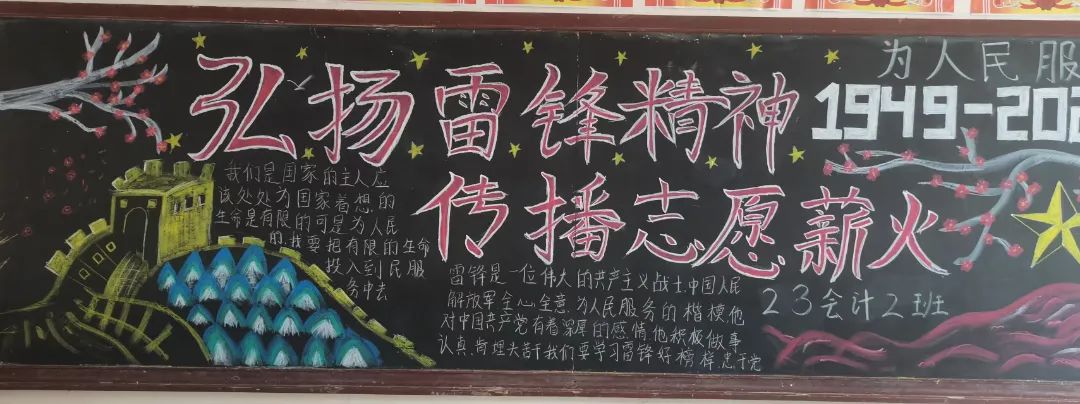 弘扬雷锋精神
传播志愿薪火
为人民服
1949-202
我们是国家的主人应
该处处为国家着想的
生命是有限的可是为人民
的我要把有限的生命
投入到民服
务中去
雷锋是一位伟大的共产主义战士中国人民
解放军全心全意为人民服务的楷模他
对中国共产党有着深厚的感情他积极做事
认真、肯埋头苦干我们要学习雷锋好榜样忠于党
23会计2班